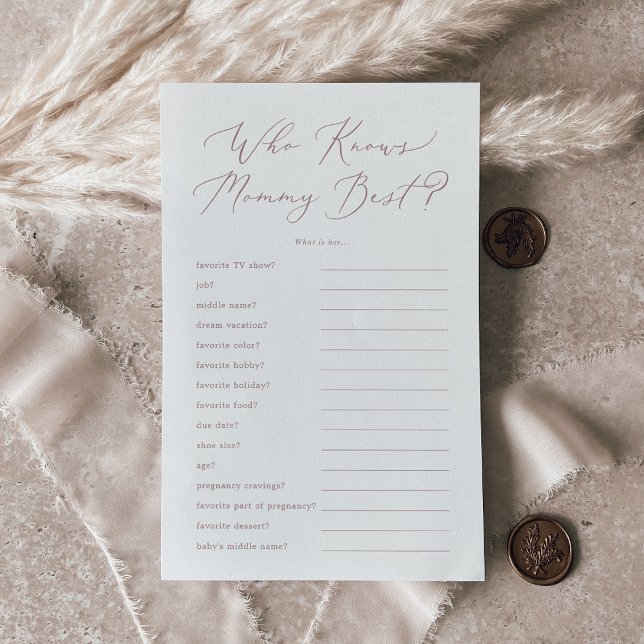 Who Knows
Mommy Best?
What is her...
favorite TV show?
job?
middle name?
dream vacation?
favorite color?
favorite hobby?
favorite holiday?
favorite food?
due date?
shoe size?
age?
pregnancy cravings?
favorite part of pregnancy?
favorite dessert?
baby's middle name?